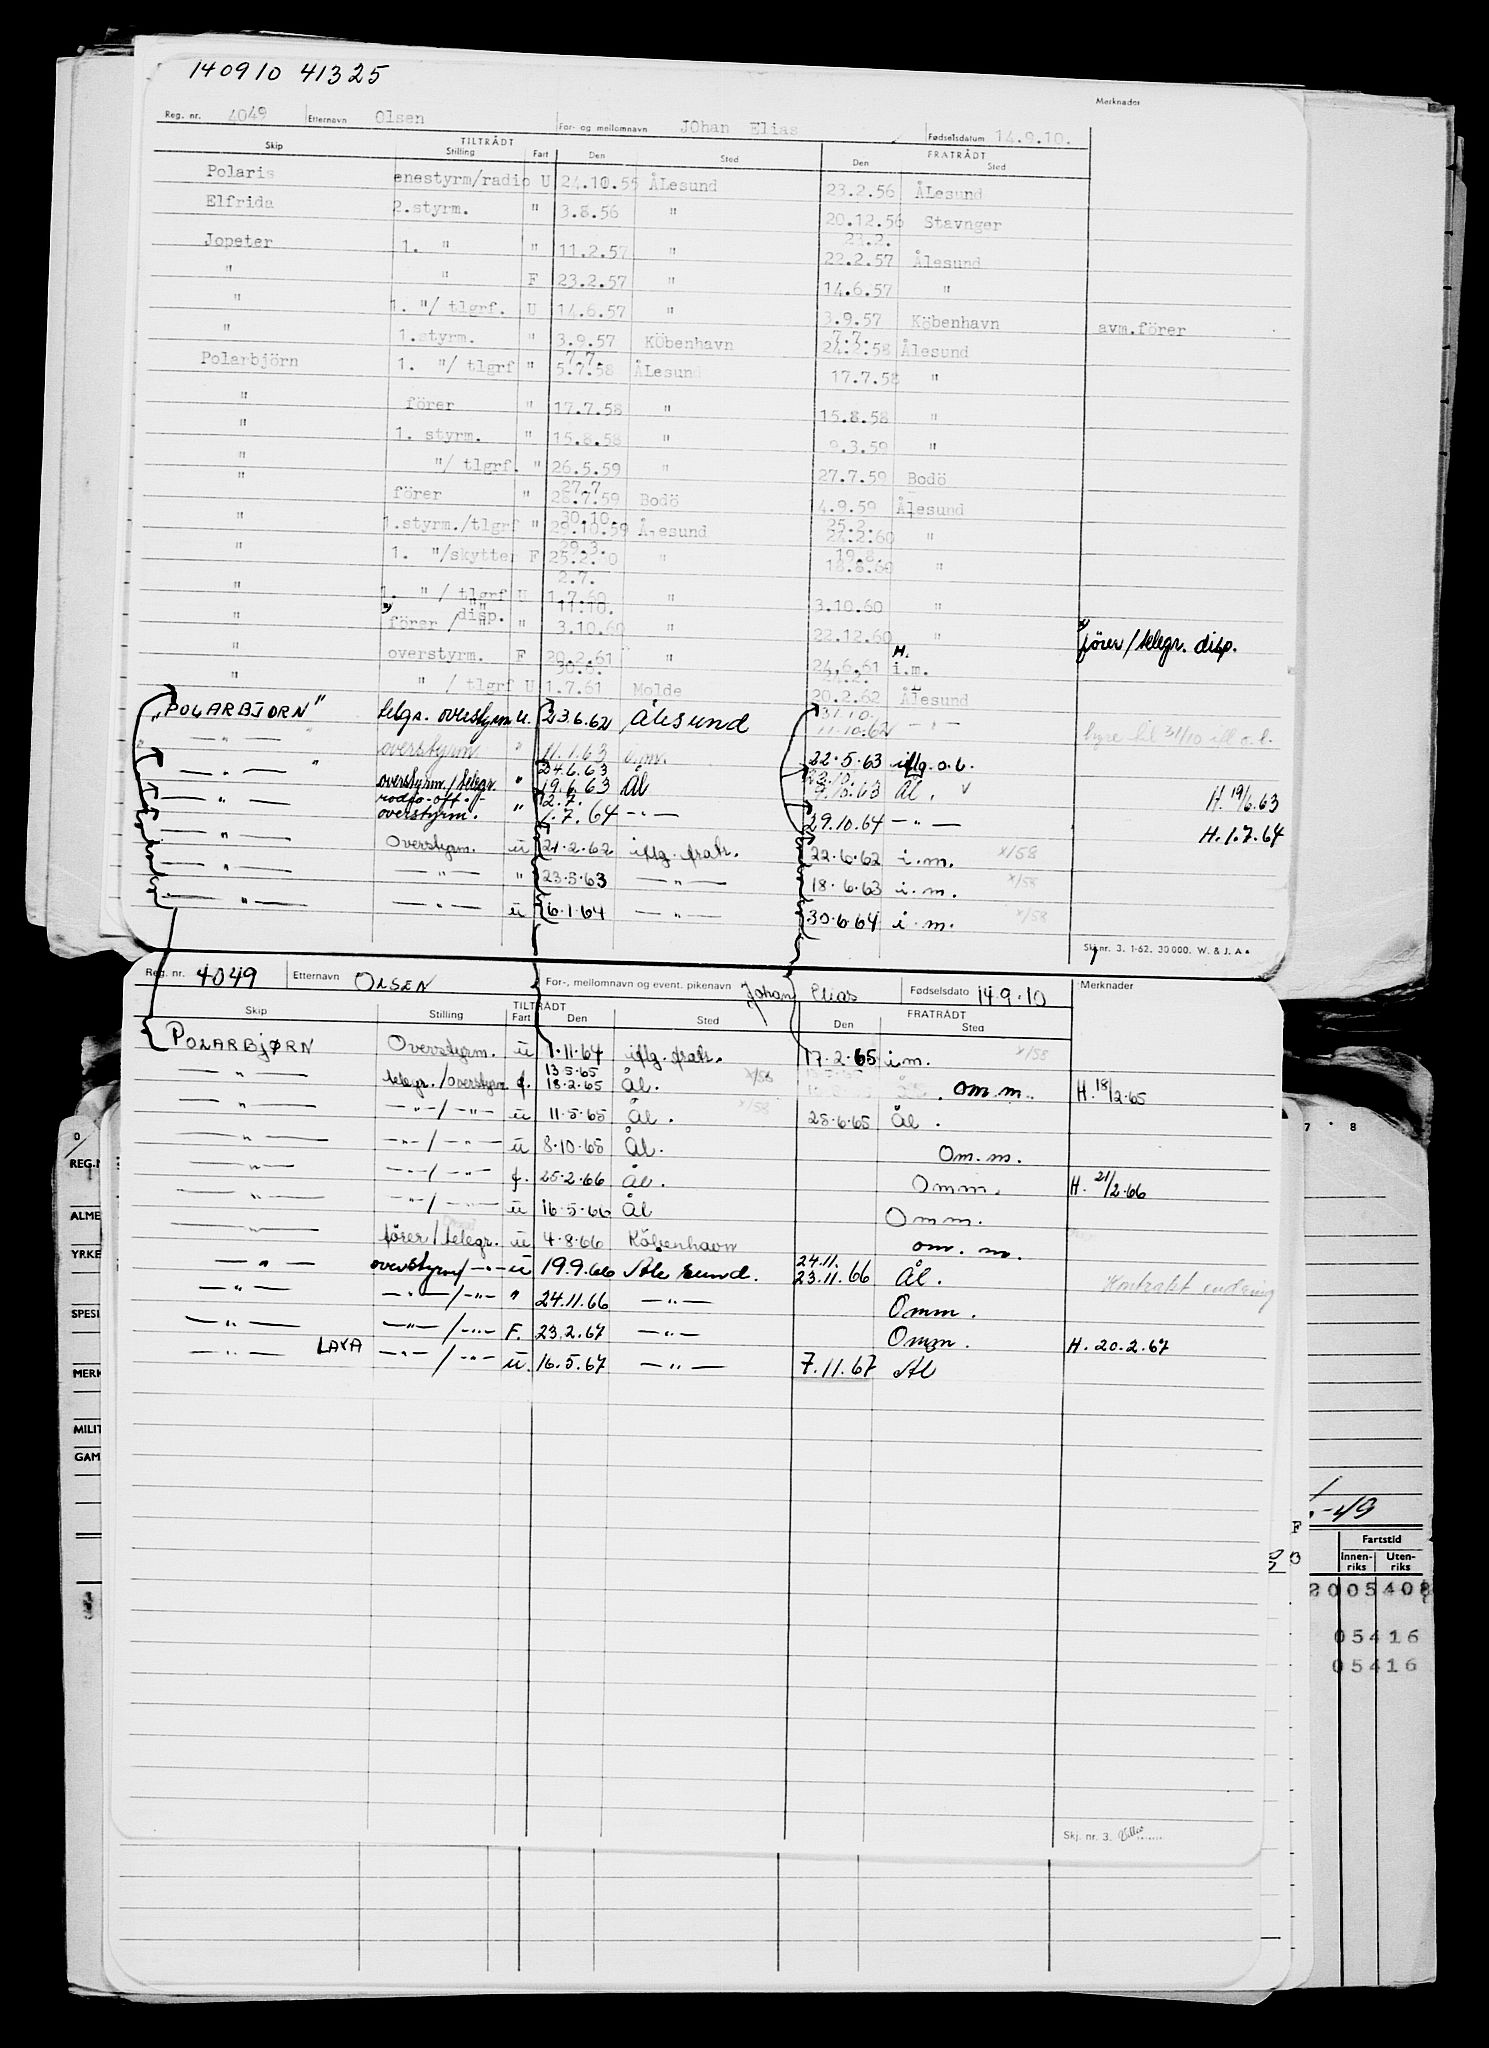 140910 41325
Merknader
Reg. nr. 4049 Etternavn Olsen For- og mellomnavn JOhan Elias Fødselsdatum 14.9.10.
TILTRÅDT FRATRÅDT
Skip Stilling Fart Den Sted Den Sted
Polaris enestyrm/radio U 24.10.55 ÅLesund 23.2.56 ÅLesund
Elfrida 2.styrm. " 3.8.56 " 20.12.56 Stavnger
23.2.
Jopeter 1. " " 11.2.57 " 22.2.57 Ålesund
" " F 23.2.57 " 14.6.57 "
" 1. "/ tlgrf. U 14.6.57 " 3.9.57 Köbenhavn avm.förer
7.7.
" 1.styrm. " 3.9.57 KÖbenhavn 24.2.58 Ålesund
7.7.
Polarbjörn 1. "/ tlgrf " 5.7.58 ÅLesund 17.7.58 "
" förer " 17.7.58 " 15.8.58 "
" 1. styrm. " 15.8.58 " 9.3.59 "
" "/ tlgrf. " 26.5.59 " 27.7.59 Bodö
27.7
" förer " 28.7.59 Bodö 4.9.59 Ålesund
30.10. 25.2.
" 1.styrm./tlgrf " 29.10.59 Ålesund 24.2.60 "
29.3. 19.8.
" 1. "/skytter F 25.2.60 " 18.8.60 "
2.7.
" 1. " / tlgrf U 1.7.60 " 3.10.60 "
disp. 11.10.
" förer / " " 3.10.60 " 22.12.60 " förer/telegr. disp.
" overstyrm. F 20.2.61 " 24.6.61 H. i.m.
30.6. 21.2.
" " / tlgrf U 1.7.61 Molde 20.2.62 Ålesund
31.10.
"POLARBJORN" telgr. overstyrm u. 23.6.62 Ålesund 11.10.62 — " — hyre til 31/10 ifl o.b.
— " — overstyrm " 11.1.63 i.m. 22.5.63 iflg. o.b.
24.6.63 23.10.
— " — overstyrm/telegr. " 19.6.63 Ål Ål. H. 19/6.63
radio-off. 2.7.
— " — overstyrm. " 1.7.64 — " — 29.10.64 — " — H. 1.7.64
— " — Overstyrm. u 21.2.62 iflg. fratr. 22.6.62 i.m. x/58
— " — — " — " 23.5.63 — " — 18.6.63 i.m. x/58
— " — — " — u 6.1.64 — " — 30.6.64 i.m. x/58
Skj.nr. 3. 1-62. 30000. W. & J. A.
Reg. nr. 4049 Etternavn OLSEN For-, mellomnavn og event. pikenavn Johan Elias Fødselsdato 14.9.10 Merknader
TILTRÅDT FRATRÅDT
Skip Stilling Fart Den Sted Den Sted
POLARBJØRN Overstyrm. u 1.11.64 iflg. fratr. 17.2.65 i.m. x/58
13.5.65
— " — telegr./overstyrm f. 18.2.65 Ål. x/58 om.m. H. 18/2.65
— " — — " — / — " — u 11.5.65 Ål. x/58 25.6.65 Ål.
— " — — " — / — " — u 8.10.65 Ål. Om.m.
— " — — " — / — " — f. 25.2.66 Ål. Omm. H. 21/2.66
— " — — " — / — " — u 16.5.66 Ål Omm.
— " — förer/telegr. u 4.8.66 Köbenhavn om.m.
24.11.
— " — overstyrm/ — " — u 19.9.66 Ålesund. 23.11.66 Ål. Kontrakt endring
— " — — " — / — " — " 24.11.66 — " — Omm.
— " — — " — / — " — F. 23.2.67 — " — Omm. H. 20.2.67
— " — LAXA — " — / — " — u. 16.5.67 — " — 7.11.67 Ål
Skj. nr. 3.
0
REG.N
ALME
YRKE
SPESI
MERK
MILIT
GAM
7 . 8
-49
F
Fartstid
Innen-riks Uten-riks
2005408
05416
05416